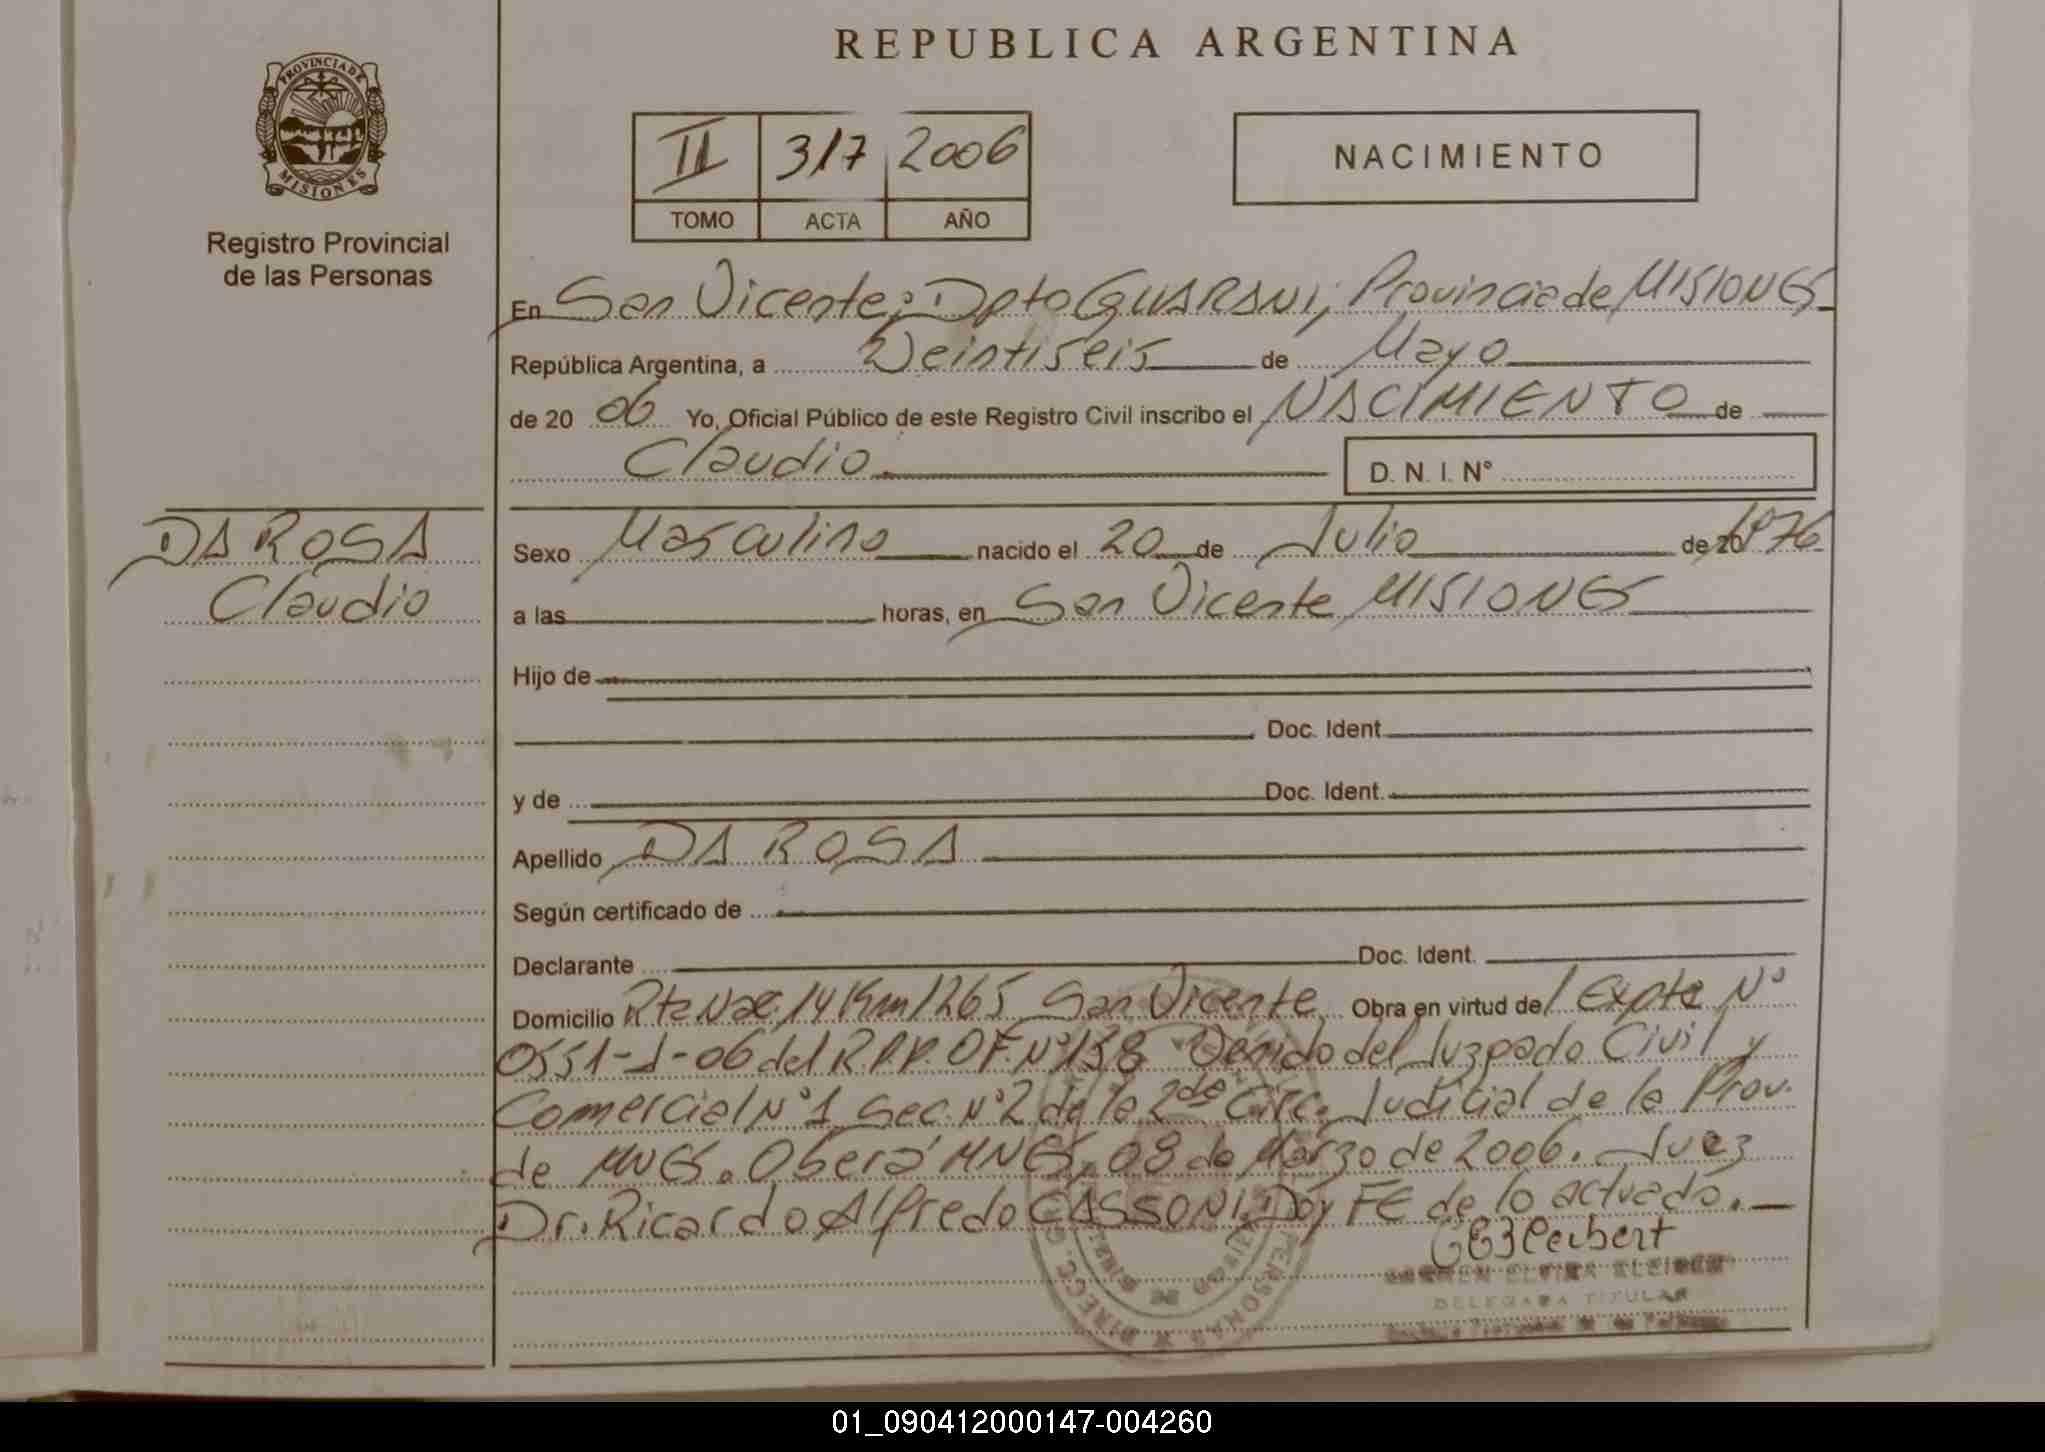 REPUBLICA ARGENTINA
PROVINCIA DE
MISIONES
Registro Provincial
de las Personas
II 317 2006
TOMO ACTA AÑO
NACIMIENTO
En San Vicente; Dpto GUARANI, Provincia de MISIONES
República Argentina, a Veintiseis de Mayo
de 20 06 Yo, Oficial Público de este Registro Civil inscribo el NACIMIENTO de
Claudio D. N. I. N°
DA ROSA
Claudio
Sexo Masculino nacido el 20 de Julio de 20 1976
a las horas, en San Vicente MISIONES
Hijo de
Doc. Ident.
y de Doc. Ident.
Apellido DA ROSA
Según certificado de
Declarante Doc. Ident.
Domicilio Rta Nac. 14 Km 1265 San Vicente Obra en virtud de Expte N°
0551-1-06 del R.P.P. OF. N° 138 Venido del Juzgado Civil y
Comercial N°1 Sec. N°2 de la 2da Circ. Judicial de la Prov.
de MNES. Oberá MNES, 08 de Marzo de 2006. Juez
Dr. Ricardo Alfredo CASSONI. Doy FE de lo actuado.
DELEGADA TITULAR
01_090412000147-004260